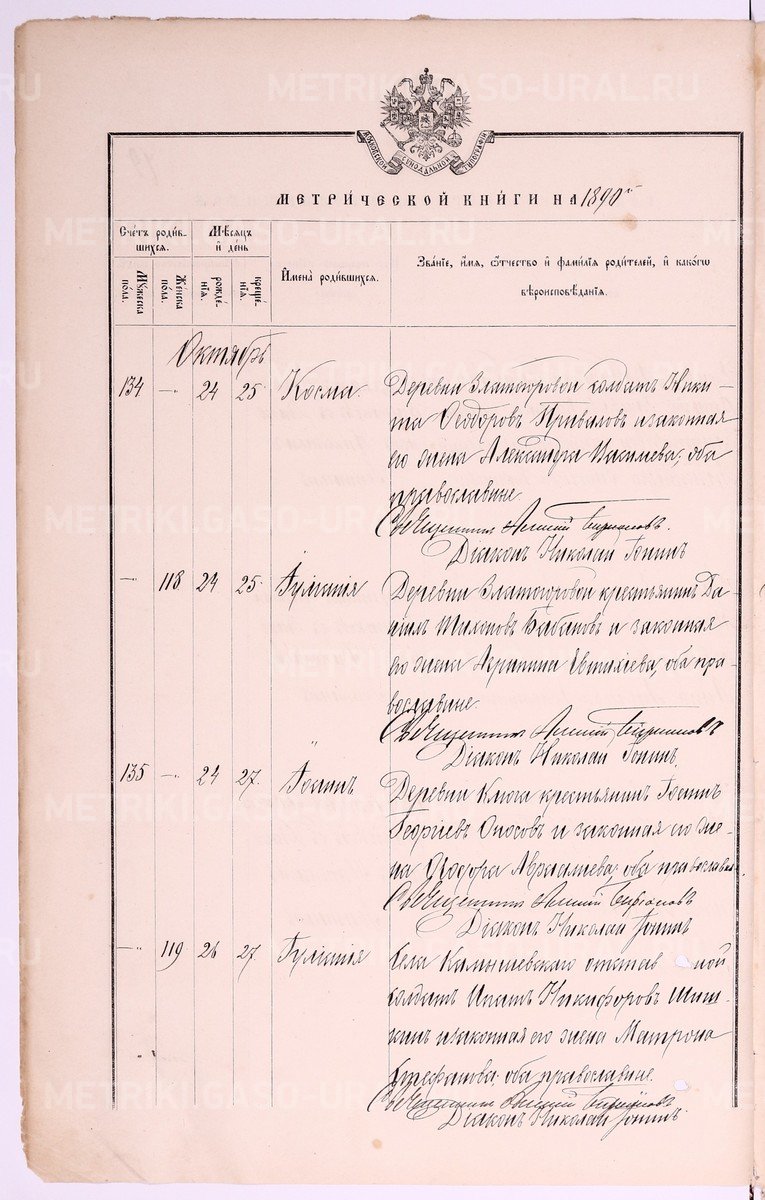 METRIKI.GASO-URAL.RU
МОСКОВСКОЙ СѴНОДАЛЬНОЙ ТИПОГРАФІИ
МЕТРИ́ЧЕСКОЙ КНИ́ГИ НА 1890 г.
Сче́тъ роди́вшихся.
Мꙋ́жеска по́ла.
Же́нска по́ла.
Мѣ́сяцъ и де́нь
рожде́нїѧ.
креще́нїѧ.
И҆мена̀ роди́вшихся.
Зва́нїе, и҆́мѧ, ѻ҆́тчество и҆ фами́лїѧ роди́телей, и҆ како́гѡ
вѣроисповѣ́данїѧ.
Октябрь
134 — 24 25 Косма. Деревни Златогоровой солдатъ Ники-
та Ѳеодоровъ Приваловъ и законная
его жена Александра Василиева; оба
православные.
Священникъ
Діаконъ Николай Тонинъ
— 118 24 25 Іулианія Деревни Златогоровой крестьянинъ Да-
ніилъ Тихоновъ Бабановъ и законная
его жена Агрипина Евтихіева, оба пра-
вославные.
Священникъ
Діаконъ Николай Тонинъ.
135 — 24 27. Іоаннъ Деревни Ключа крестьянинъ Іоаннъ
Георгіевъ Оносовъ и законная его же-
на Ѳеодора оба православн.
Священникъ
Діаконъ Николай Тонинъ
— 119 26 27. Іуліанія Села Камышевскаго отстав ной
солдатъ Ипатъ Никифоровъ Шиш-
кинъ и законная его жена Матрона
Стефанова; оба православные.
Священникъ
Діаконъ Николай Тонинъ.